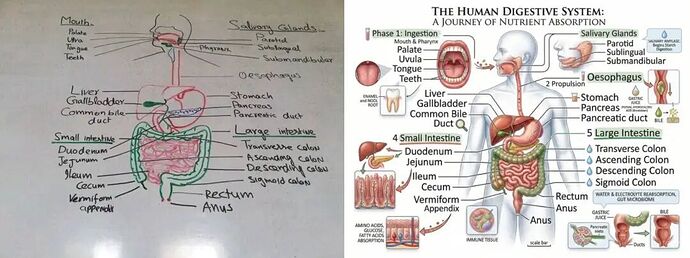 Mouth
Palate
Uvla
Tongue
Teeth
Pharynx
Salivary Glands
Parotid
Sublingual
Submandibular
Oesophagus
Liver
Gallbladder
Common bile
duct
Stomach
Pancreas
Pancreatic duct
Small intestine
Duodenum
Jejunum
Ileum
Cecum
Vermiform
appendix
Large intestine
Transverse colon
Ascending colon
Descording colon
Sigmoid colon
Rectum
Anus
THE HUMAN DIGESTIVE SYSTEM:
A JOURNEY OF NUTRIENT ABSORPTION
Phase 1: Ingestion
Mouth & Pharynx
Palate
Uvula
Tongue
Teeth
ENAMEL AND
ROOT
Salivary Glands
Parotid
Sublingual
Submandibular
SALIVARY AMYLASE,
Begins Starch
Digestion
2 Propulsion
Oesophagus
GASTRIC
JUICE
BILE
Liver
Gallbladder
Common Bile
Duct
Stomach
Pancreas
Pancreatic duct
4 Small Intestine
Duodenum
Jejunum
Ileum
Cecum
Vermiform
Appendix
AMINO ACIDS,
GLUCOSE,
FATTY ACIDS
ABSORPTION
IMMUNE TISSUE
5 Large Intestine
Transverse Colon
Ascending Colon
Descending Colon
Sigmoid Colon
WATER & ELECTROLYTE REABSORPTION,
GUT MICROBIOME
Rectum
Anus
Anus
scale bar
GASTRIC
JUICE
BILE
Ducts